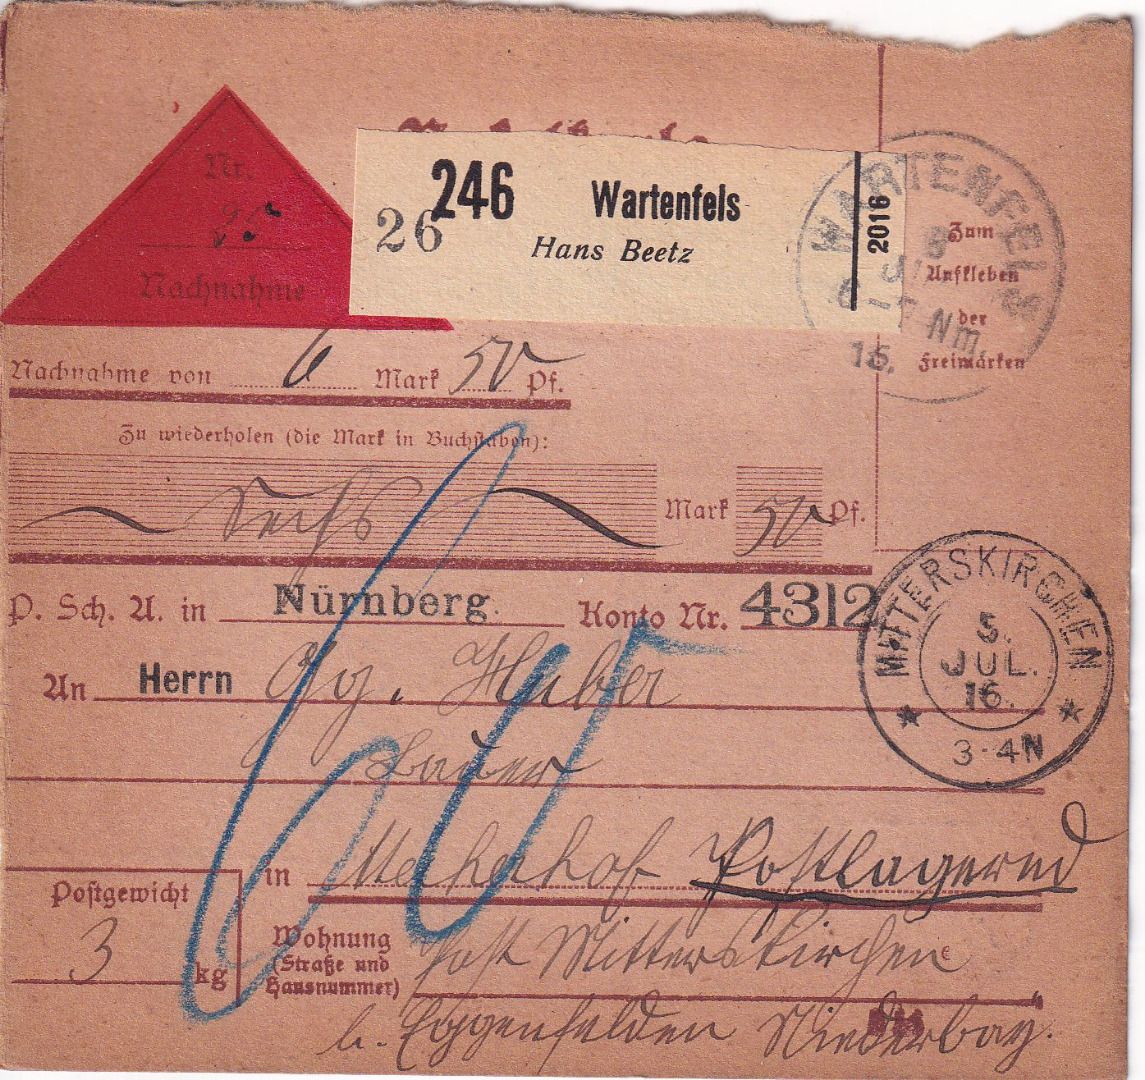 Nr.
Nachnahme
246 Wartenfels
26
Hans Beetz
2016
WARTENFELS
6-7 Nm.
15.
Zum
Aufkleben
der
Freimarken
Nachnahme von 6 Mark 50 Pf.
Zu wiederholen (die Mark in Buchstaben):
Sechs Mark 50 Pf.
P. Sch. A. in Nürnberg. Konto Nr. 4312
An Herrn Gg. Huber
Bauer
MITTERSKIRCHEN
5.
JUL.
16.
3-4N
60
in Postlagernd
Postgewicht
3 kg
Wohnung
(Straße und
Hausnummer)
Post Mitterskirchen
b. Eggenfelden Niederbay.